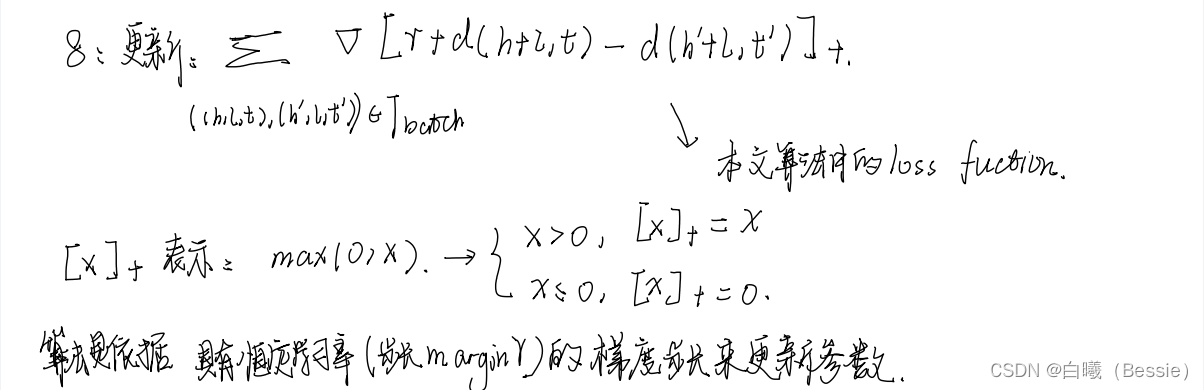 8: 更新: ∑ ∇ [γ + d(h+l, t) − d(h'+l, t')]+.
((h,l,t),(h',l,t')) ∈ Tbatch
↘ 本文算法中的loss fuction.
[x]+ 表示: max(0, x). → { x>0, [x]+ = x
x≤0, [x]+ = 0.
算法是依据 具有恒定学习率(步长marginγ)的梯度步长来更新参数.
CSDN @白曦（Bessie）